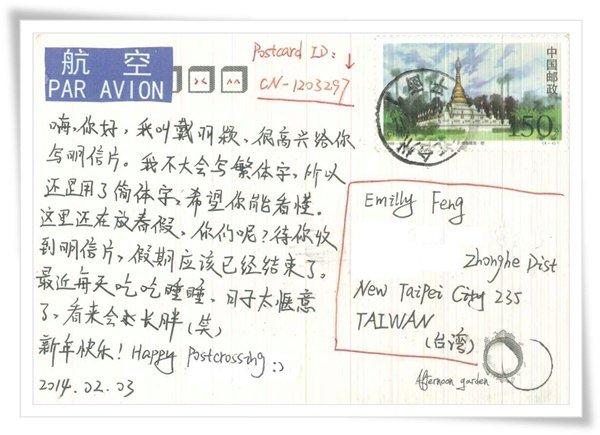 航 空
PAR AVION
Postcard ID:
CN-1203297
中国邮政
150分
嗨,你好,我叫戴羽颖,很高兴给你
写明信片。我不大会写繁体字,所以
还是用了简体字,希望你能看懂。
这里还在放春假,你们呢?待你收
到明信片,假期应该已经结束了。
最近每天吃吃睡睡,日子太惬意
了,看来会长胖(笑)
新年快乐! Happy Postcrossing :)
2014.02.03
Emilly Feng
Zhonghe Dist
New Taipei City 235
TAIWAN
(台湾)
Afternoon garden